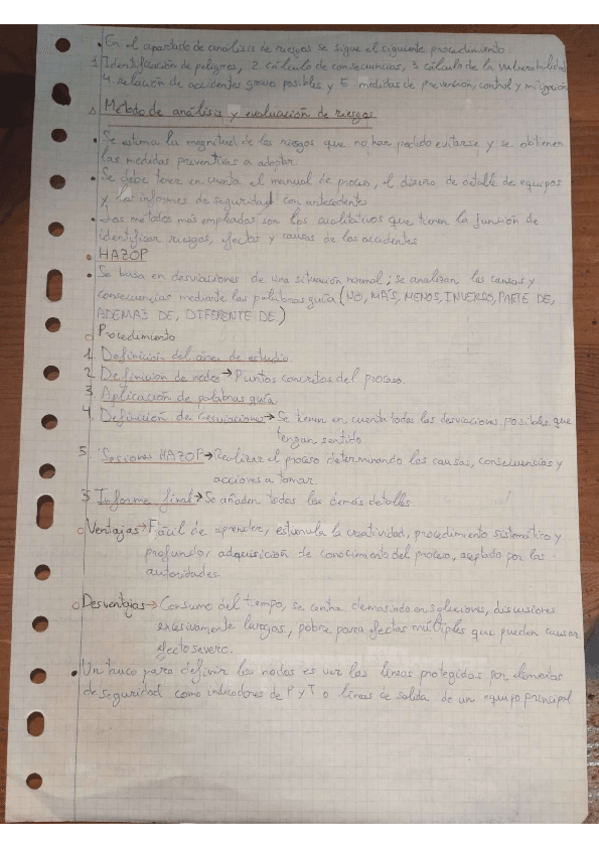 • En el apartado de análisis de riesgos se sigue el siguiente procedimiento
1 Identificación de peligros, 2. cálculo de consecuencias, 3 cálculo de la vulnerabilidad
4. relación de accidentes graves posibles y 5 medidas de prevención, control y mitigación
Método de análisis y evaluación de riesgos
• Se estima la magnitud de los riesgos que no han podido evitarse y se obtienen
las medidas preventivas a adoptar.
• Se debe tener en cuenta el manual de proceso, el diseño de detalle de equipos
y los informes de seguridad con antecedentes
• Los métodos más empleados son los cualitativos que tienen la función de
identificar riesgos, efectos y causas de los accidentes
• HAZOP
• Se basa en desviaciones de una situación normal; se analizan las causas y
consecuencias mediante las palabras guía (NO, MAS, MENOS, INVERSO, PARTE DE,
ADEMAS DE, DIFERENTE DE)
o Procedimiento
1. Definición del área de estudio
2 Definición de nodos → Puntos concretos del proceso.
3. Aplicación de palabras guía
4. Definición de desviaciones → Se tienen en cuenta todas las desviaciones posibles que
tengan sentido
5. Sesiones HAZOP → Realizar el proceso determinando las causas, consecuencias y
acciones a tomar.
3 Informe final → Se añaden todos los demás detalles
o Ventajas → Fácil de aprender, estimula la creatividad, procedimiento sistemático y
profundo, adquisición de conocimiento del proceso, aceptado por las
autoridades.
o Desventajas → Consumo del tiempo, se centra demasiado en soluciones, discusiones
excesivamente largas, pobre para efectos múltiples que pueden causar
efecto severo.
• Un truco para definir los nodos es ver las líneas protegidas por elementos
de seguridad como indicadores de P y T o líneas de salida de un equipo principal